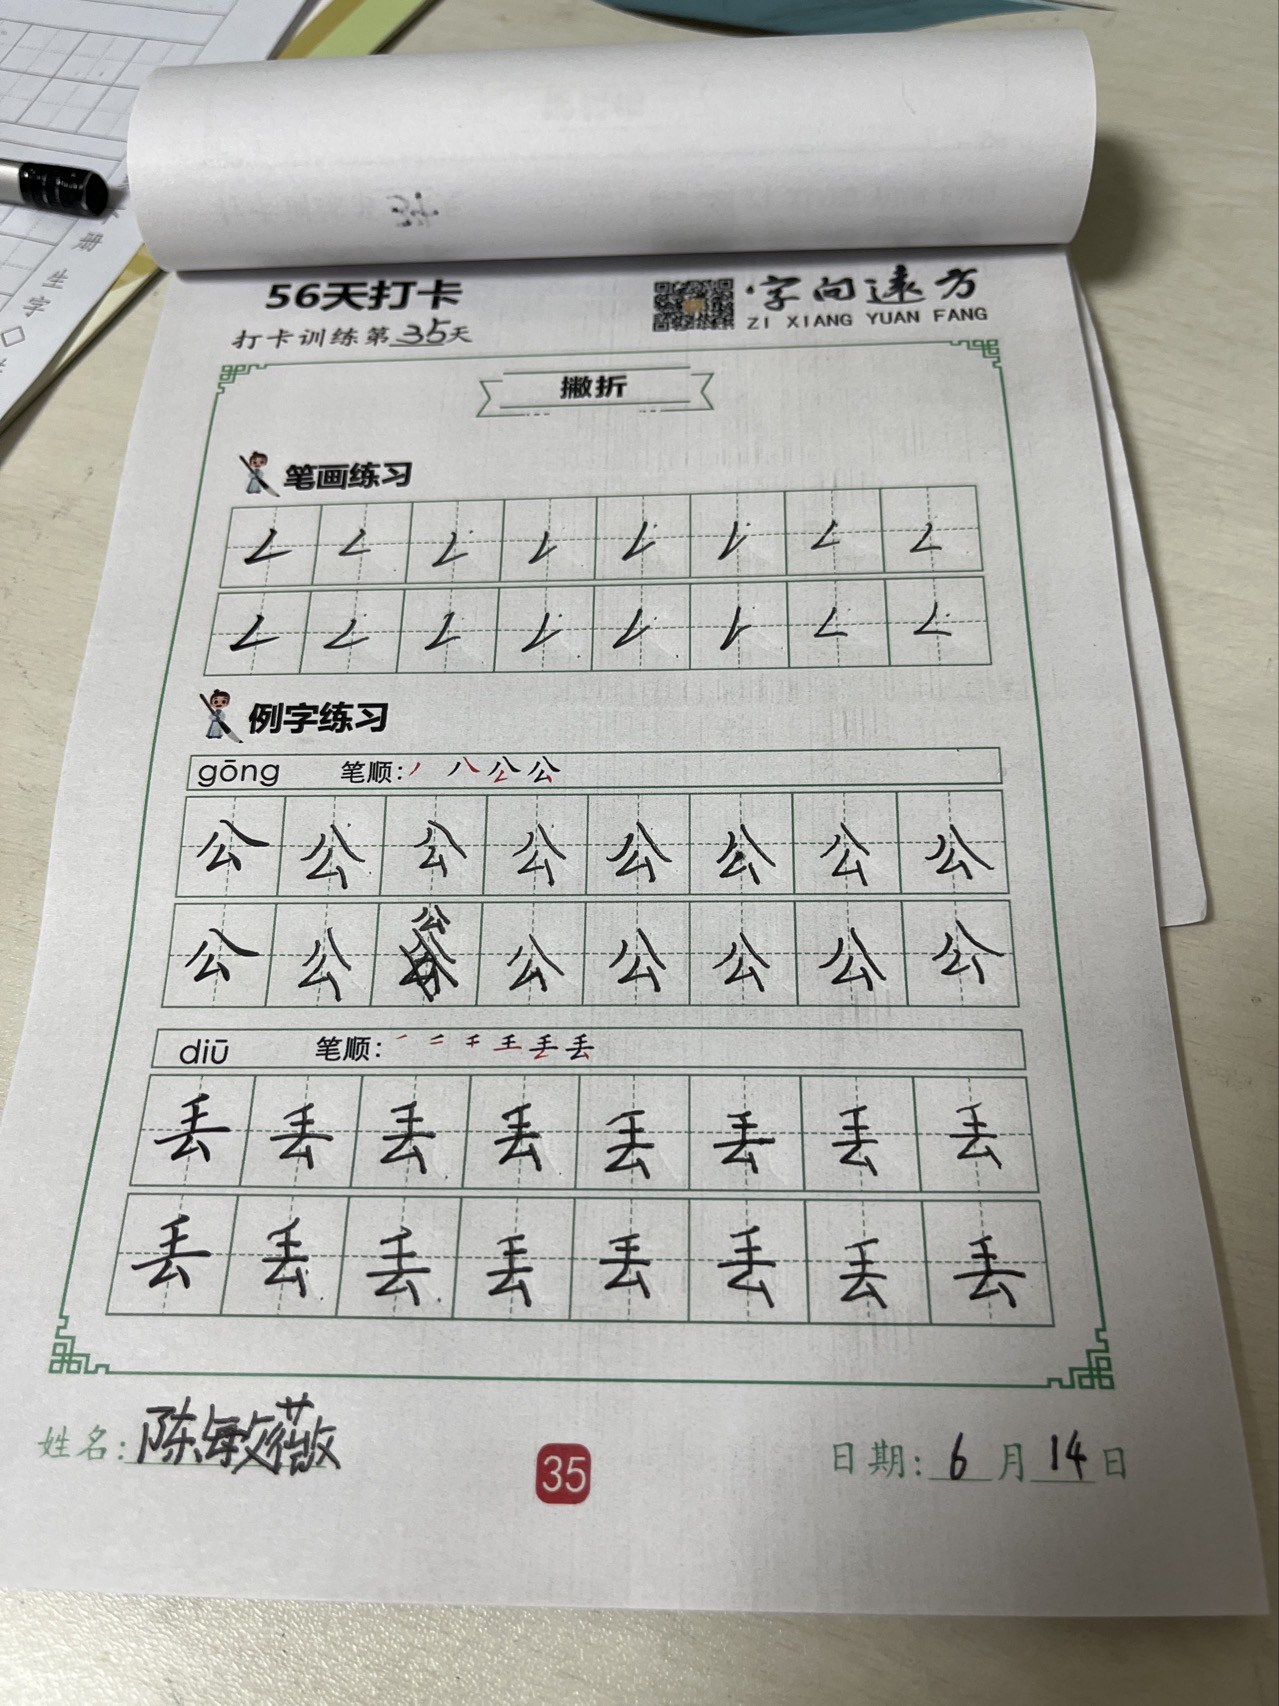 册
生字
56天打卡
字向远方
打卡训练第35天
ZI XIANG YUAN FANG
撇折
笔画练习
例字练习
gōng 笔顺: 丿 八 公 公
公 公 公 公 公 公 公 公
公
公 公 公 公 公 公 公
diū 笔顺: 丢 丢
丢 丢 丢 丢 丢 丢 丢 丢
丢 丢 丢 丢 丢 丢 丢 丢
姓名: 陈敏薇
35
日期: 6 月 14 日